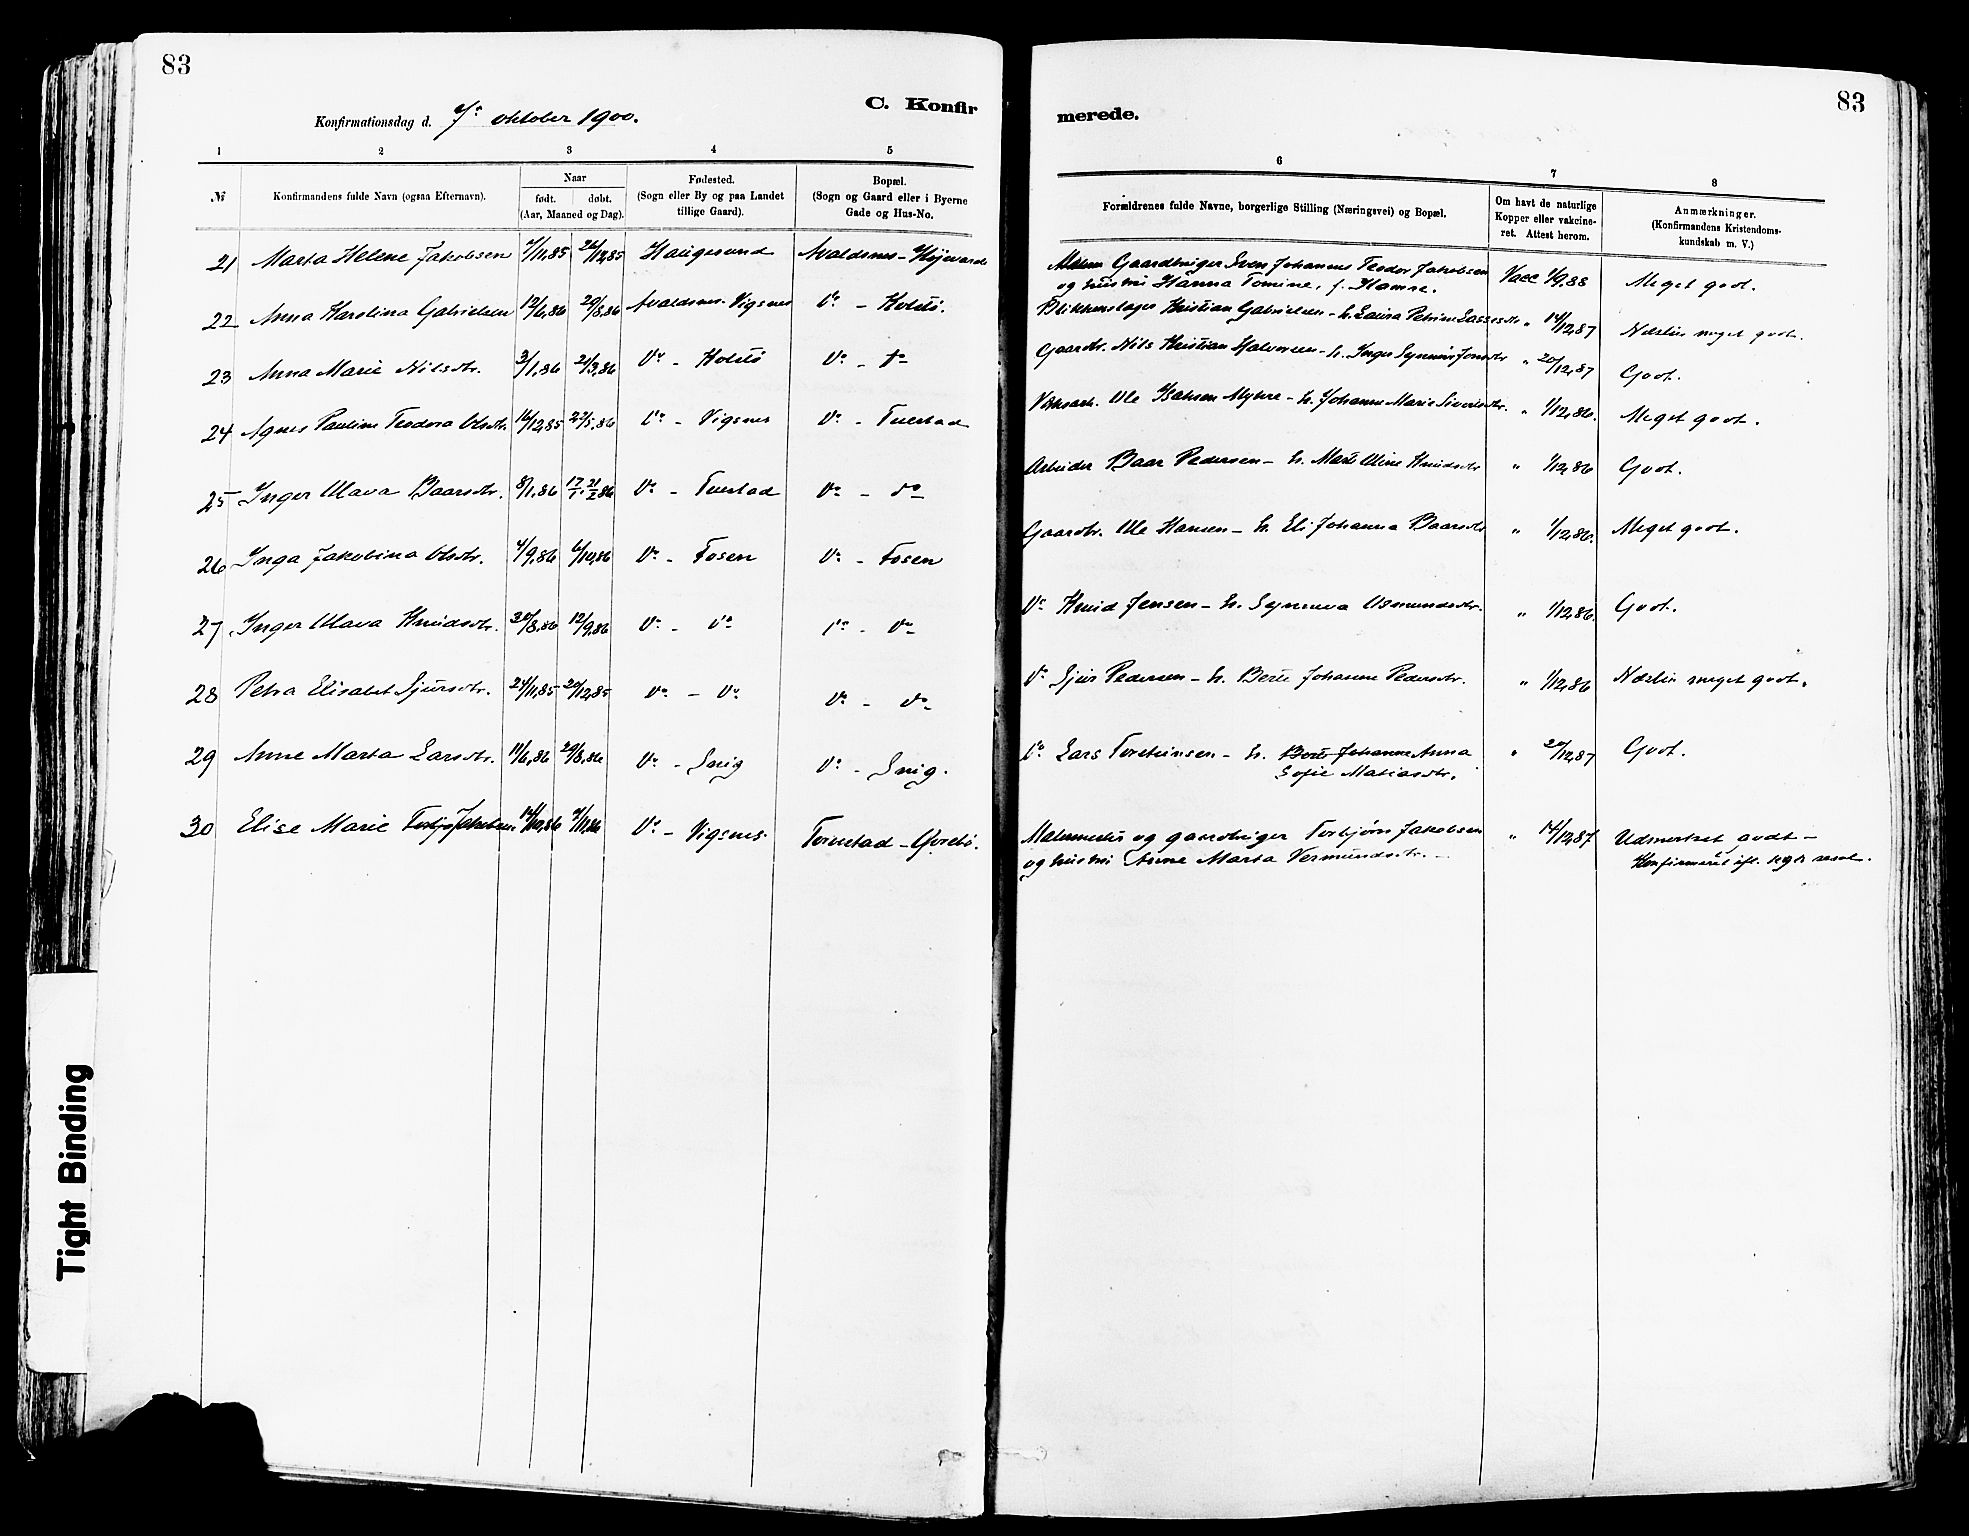 83
C. Konfir
Konfirmationsdag d. 7de oktober 1900.
1 2 3 4 5
№ Konfirmandens fulde Navn (ogsaa Efternavn). Naar født. døbt. (Aar, Maaned og Dag). Fødested. (Sogn eller By og paa Landet tillige Gaard). Bopæl. (Sogn og Gaard eller i Byerne Gade og Hus-No.
21 Marta Helene Jakobsen 7/11,85 26/12,85 Haugesund Avaldsnes - Højevarde
22 Anna Karolina Gabrielsen 12/6,86 29/8,86 Avaldsnes - Vigsnes Do - Kolstø.
23 Anna Marie Nilsdtr. 3/1,86 21/3,86 Do - Kolstø Do - do
24 Agnes Pauline Teodora Olsdtr. 16/12,85 22/5,86 Do - Vigsnes Do - Tuestad
25 Inger Olava Baarsdtr. 8/1,86 17/1. 21/2 86 Do - Tuestad Do - do
26 Inga Jakobina Olsdtr. 4/9,86 6/10,86 Do - Fosen Do - Fosen
27 Inger Olava Knudsdtr. 30/8,86 12/9,86 Do - do Do - do
28 Petra Elisabet Sjursdtr. 24/11,85 26/12,85 Do - Do Do - do
29 Anne Marta Larsdtr. 11/6,86 29/8,86 Do - Snig Do - Snig.
30 Elise Marie Jakobsen 14/10,86 7/11,86 Do - Vigsnes. Torvestad - Gvretø.
83
merede.
6 7 8
Forældrenes fulde Navne, borgerlige Stilling (Næringsvei) og Bopæl. Om havt de naturlige Kopper eller vakcineret. Attest herom. Anmærkninger. (Konfirmandens Kristendomskundskab m. V.)
Gaardbruger Sven Johannes Teodor Jakobsen Vacc 1/9,88 Meget godt.
og hustru Hanna Tomine, f. Hamre.
Blikkenslager Kristian Gabrielsen - h. Laura Petrine Lassesdtr. " 14/12,87 Næsten meget godt.
Gaardbr. Nils Kristian Halvorsen - h. Inger Synnøve Jonsdtr " 20/12,87 Godt.
Ole Isaksen Myhre - h. Johanne Marie Sivertsdtr. " 1/12,86. Meget godt.
Arbeider Baar Pedersen - h. Marte Oline Knudsdtr " 1/12,86 Godt.
Gaardbr. Ole Hansen - h. Eli Johanna Baarsdtr " 1/12,86. Meget godt.
Do Knud Jensen - h. Synneva Osmundsdtr. " 1/12,86. Godt.
Do Sjur Pedersen - h. Berte Johanne Pedersdtr. " 1/12,86 Næsten meget godt.
Do Lars Torstensen - h. Berte Johanne Anna " 20/12,87 Godt.
Sofie Matiasdtr.
Malermester og gaardbruger Torbjørn Jakobsen " 14/12,87 Udmerket godt -
og hustru Anne Marta Vermundsdtr. - Konfirmeret eft. kgl. resol.
Tight Binding